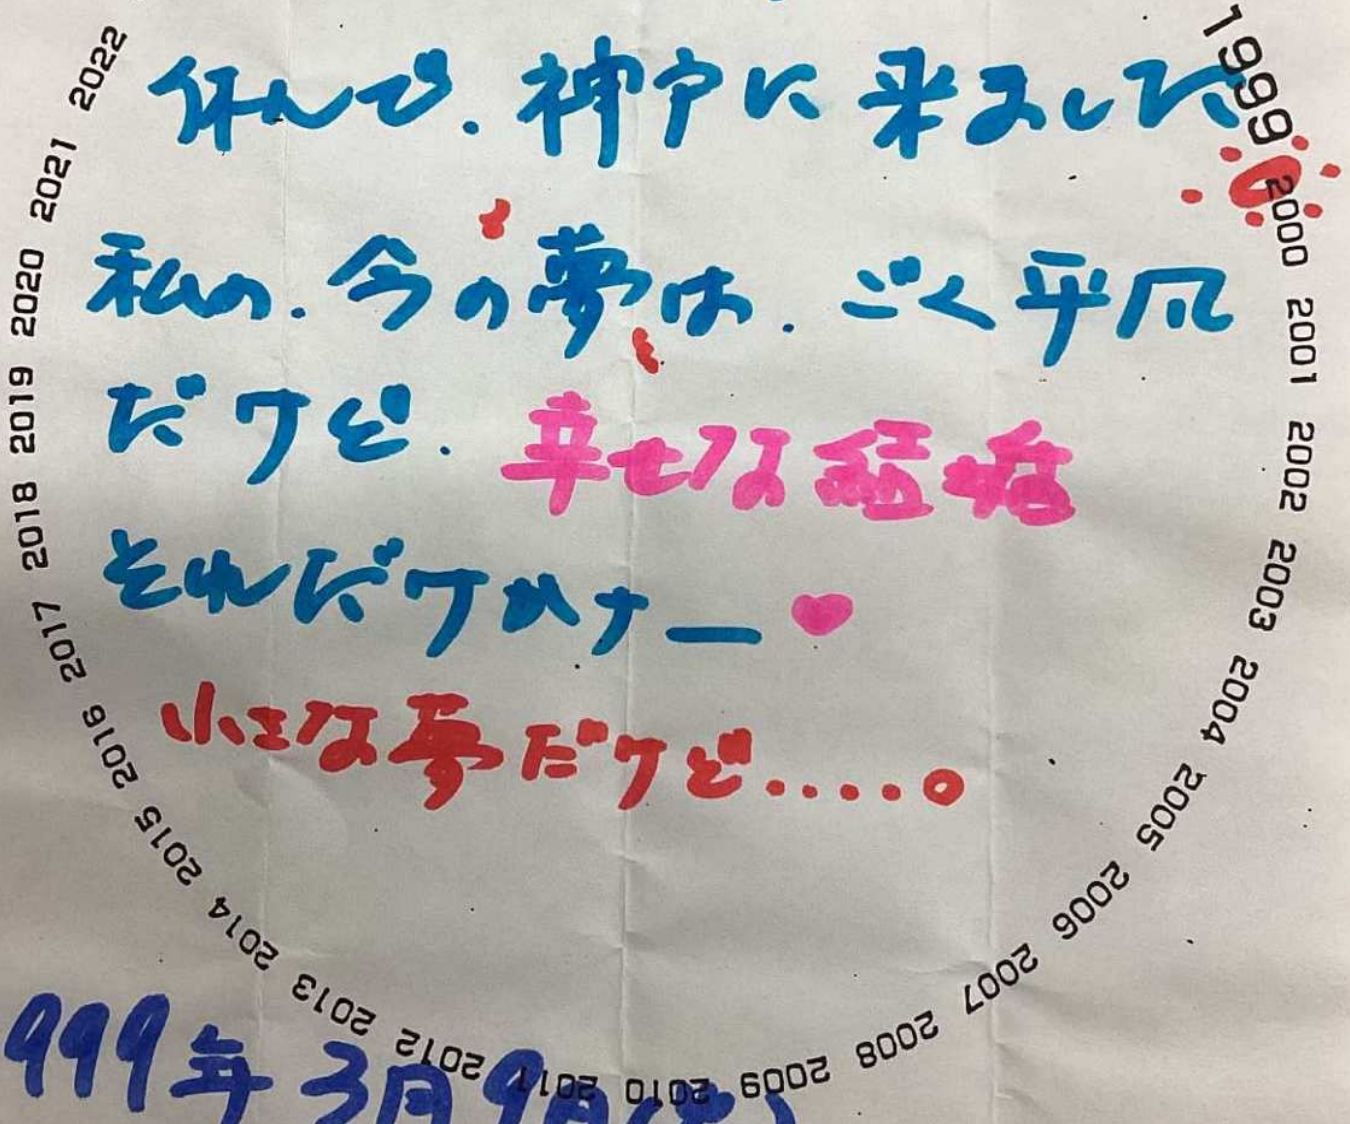 休んで.神戸に来ました
私の.今の夢は.ごく平凡
だケど.幸せな結婚
それだケかナー♥
小さな夢だケど.....。
999年3月9日(火)
1999
2000
2001
2002
2003
2004
2005
2006
2007
2008
2009
2010
2011
2012
2013
2014
2015
2016
2017
2018
2019
2020
2021
2022